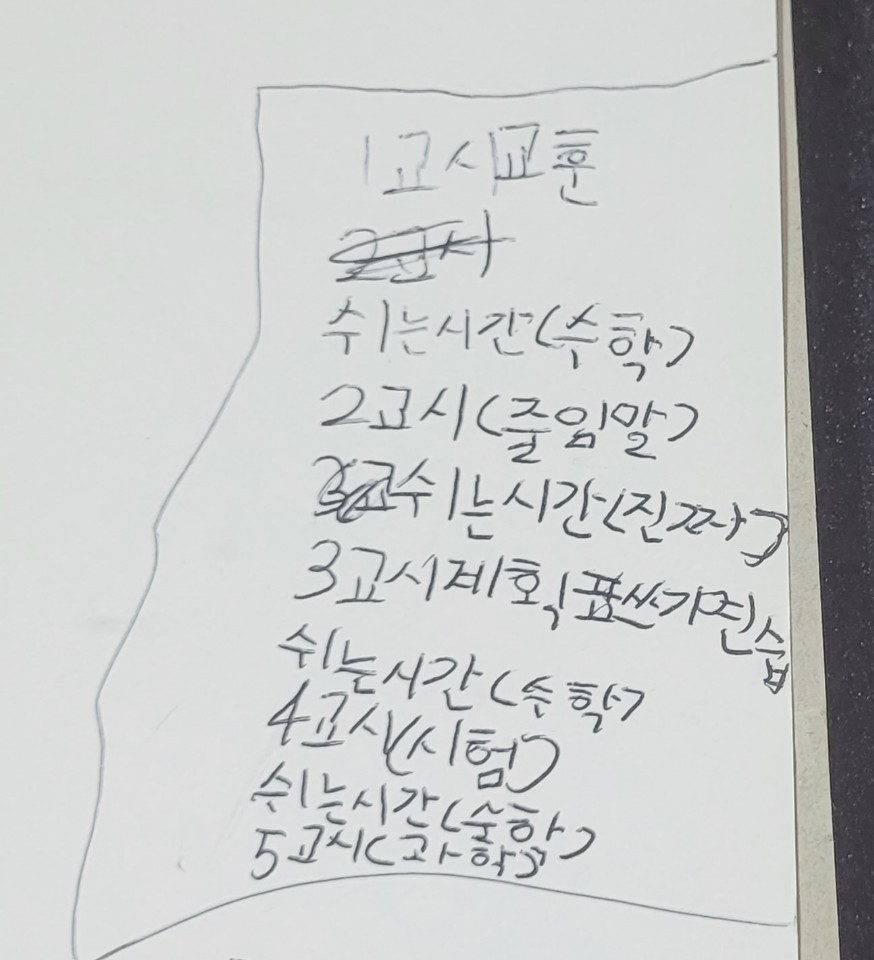 1교시교훈
쉬는시간(수학)
2교시(줄임말)
쉬는시간(진짜)
3교시계획표쓰기연습
쉬는시간(수학)
4교시(시험)
쉬는시간(수학)
5교시(과학)